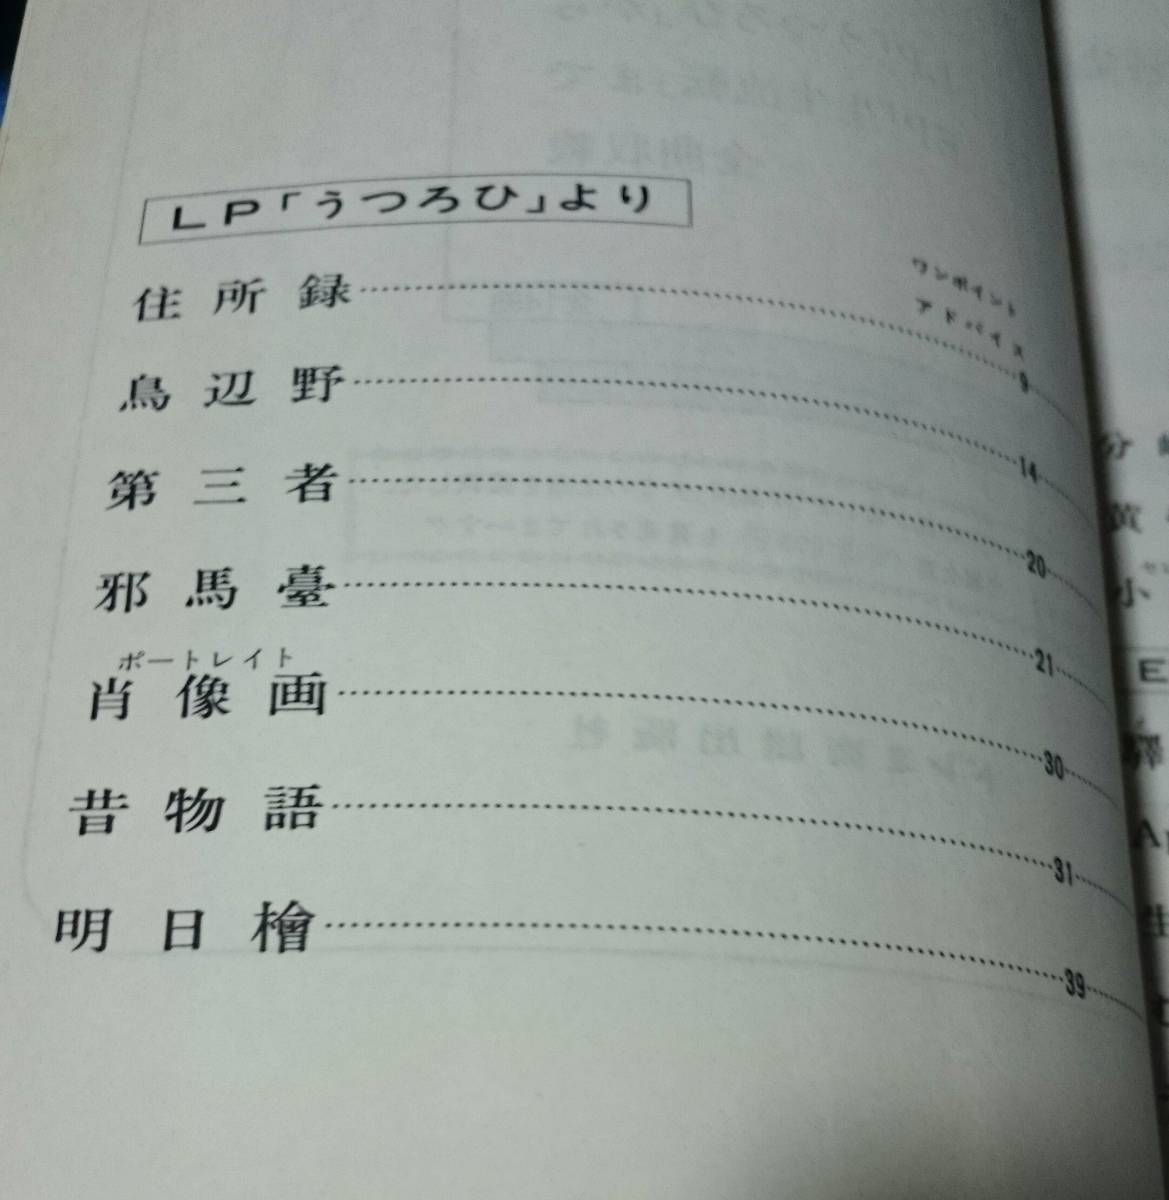 LP「うつろひ」より
ワンポイント
アドバイス
住所録……9……
鳥辺野……14……
第三者……20……
邪馬臺……21……
ポートレイト
肖像画……30……
昔物語……31……
明日檜……39……
分
黄
小
E